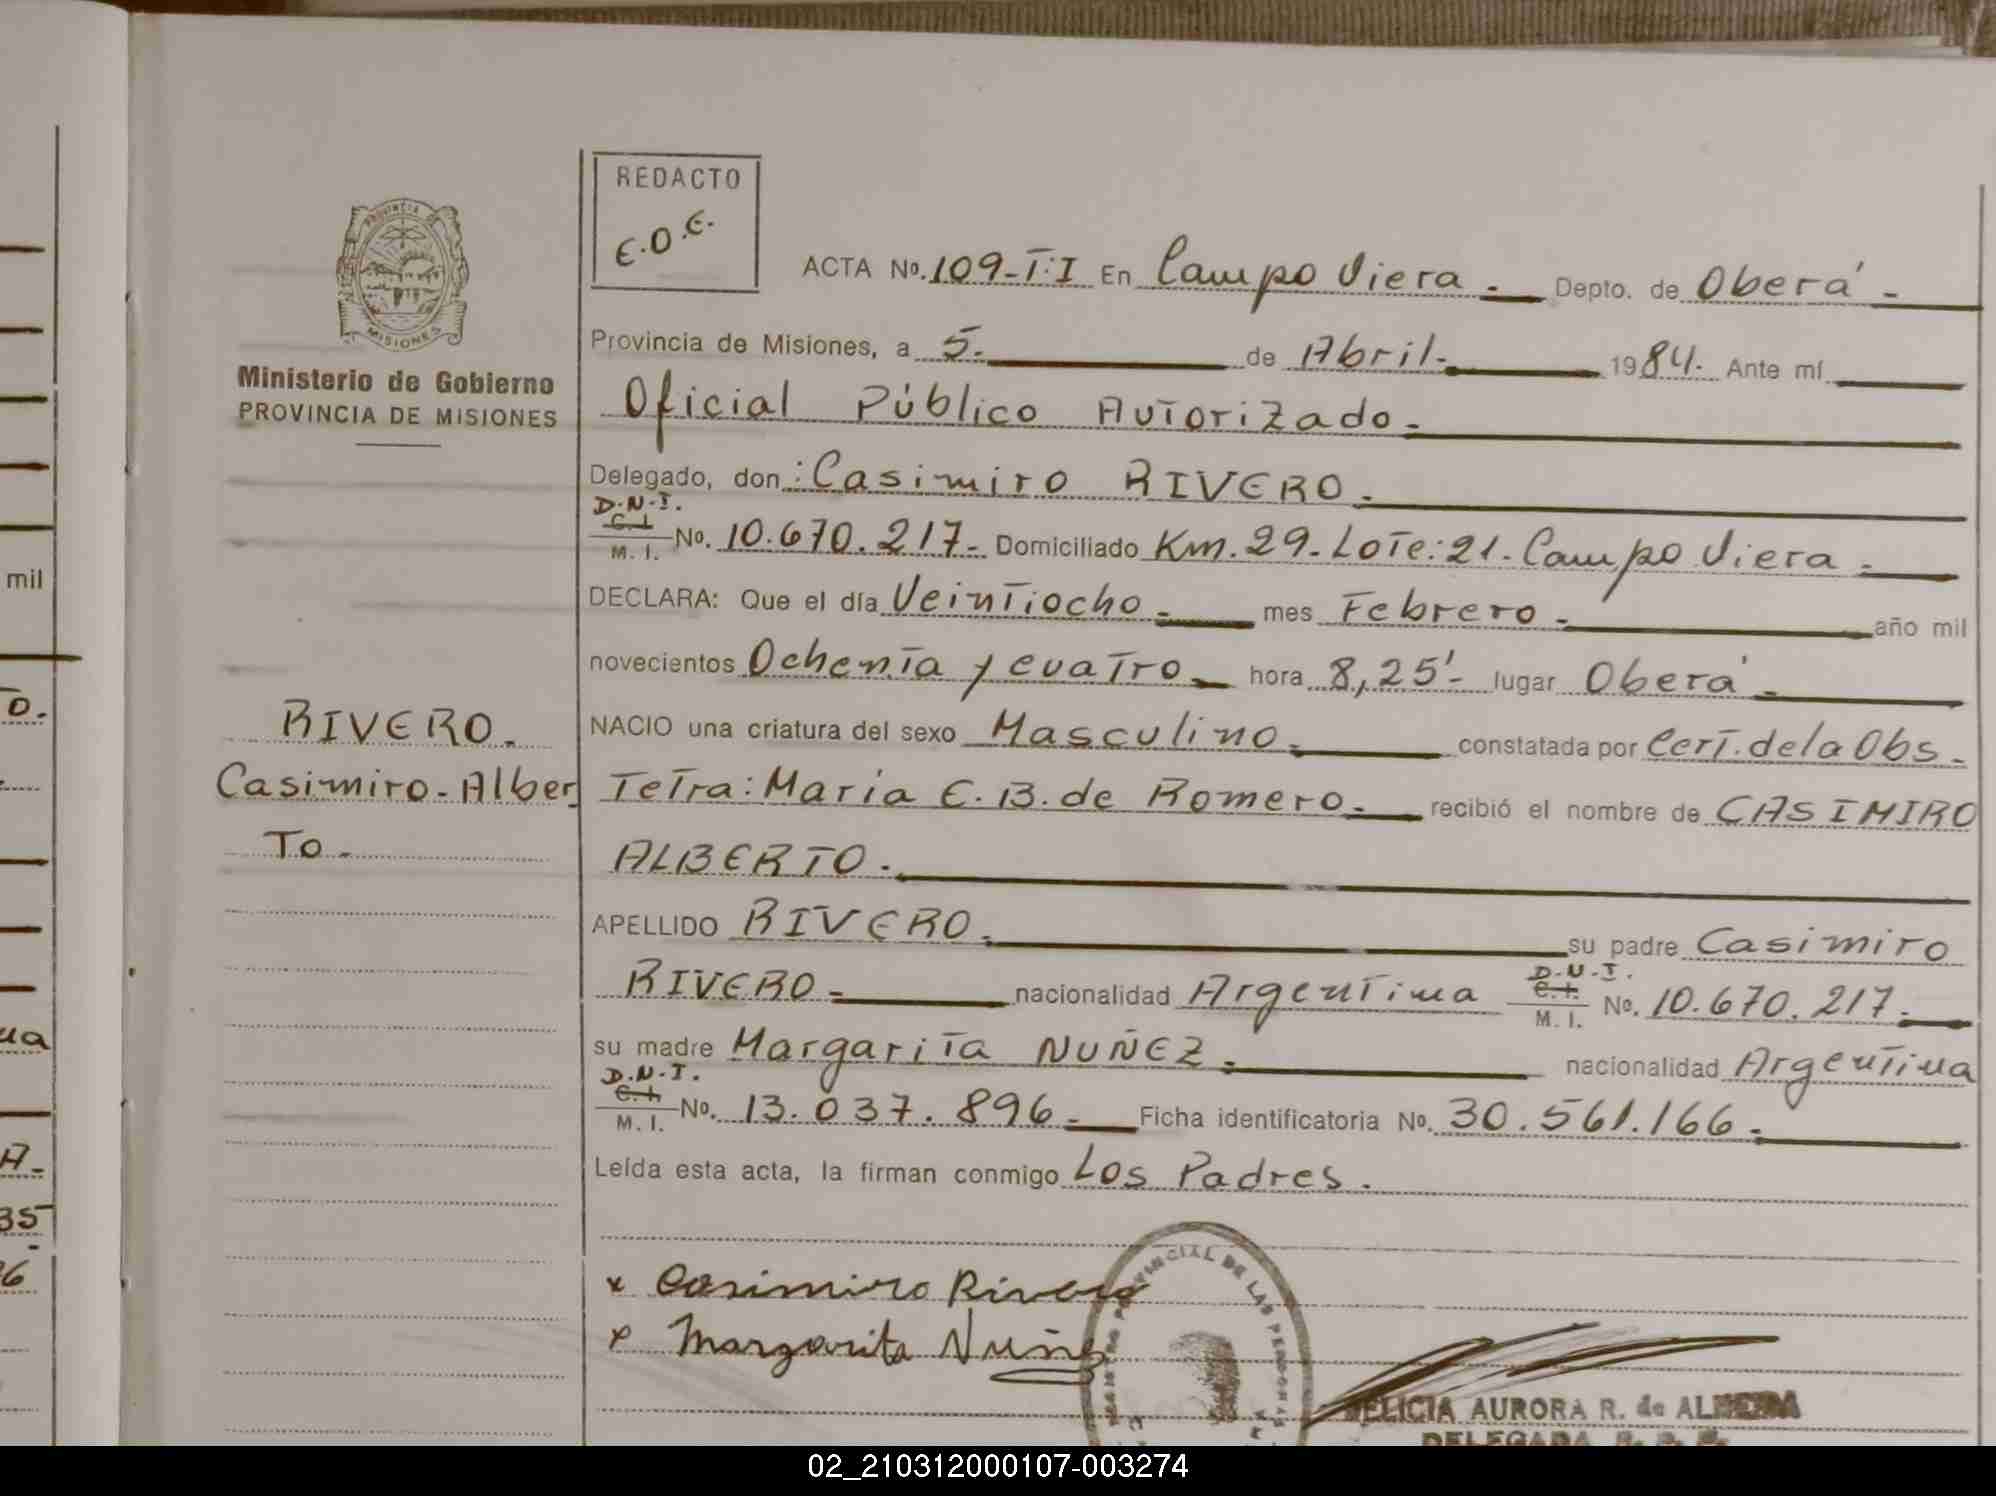 REDACTO
E.O.E.
PROVINCIA DE
MISIONES
Ministerio de Gobierno
PROVINCIA DE MISIONES
RIVERO.
Casimiro-Alber
To.
ACTA No. 109-T:I En Campo Viera. Depto. de Oberá-
Provincia de Misiones, a 5. de Abril. 1984. Ante mí
Oficial Público Autorizado.
Delegado, don: Casimiro RIVERO.
D.N.I.
C.I.
M.I. No. 10.670.217- Domiciliado Km.29-Lote:21-Campo Viera.
DECLARA: Que el día Veintiocho. mes Febrero. año mil
novecientos Ochenta y cuatro. hora 8,25'- lugar Oberá.
NACIO una criatura del sexo Masculino. constatada por Cert. de la Obs-
Tetra: María E.B. de Romero. recibió el nombre de CASIMIRO
ALBERTO.
APELLIDO RIVERO. su padre Casimiro
RIVERO- nacionalidad Argentina D.N.I. C.I. M.I. No. 10.670.217.
su madre Margarita NUÑEZ. nacionalidad Argentina
D.N.I.
C.I.
M.I. No. 13.037.896. Ficha identificatoria No. 30.561.166.
Leída esta acta, la firman conmigo Los Padres.
x Casimiro Rivero
x Margarita Nuñez
PROVINCIAL DE LAS PERSONAS
FELICIA AURORA R. de ALMEIDA
DELEGADA
mil
o.
ua
A-
35
6
02_210312000107-003274